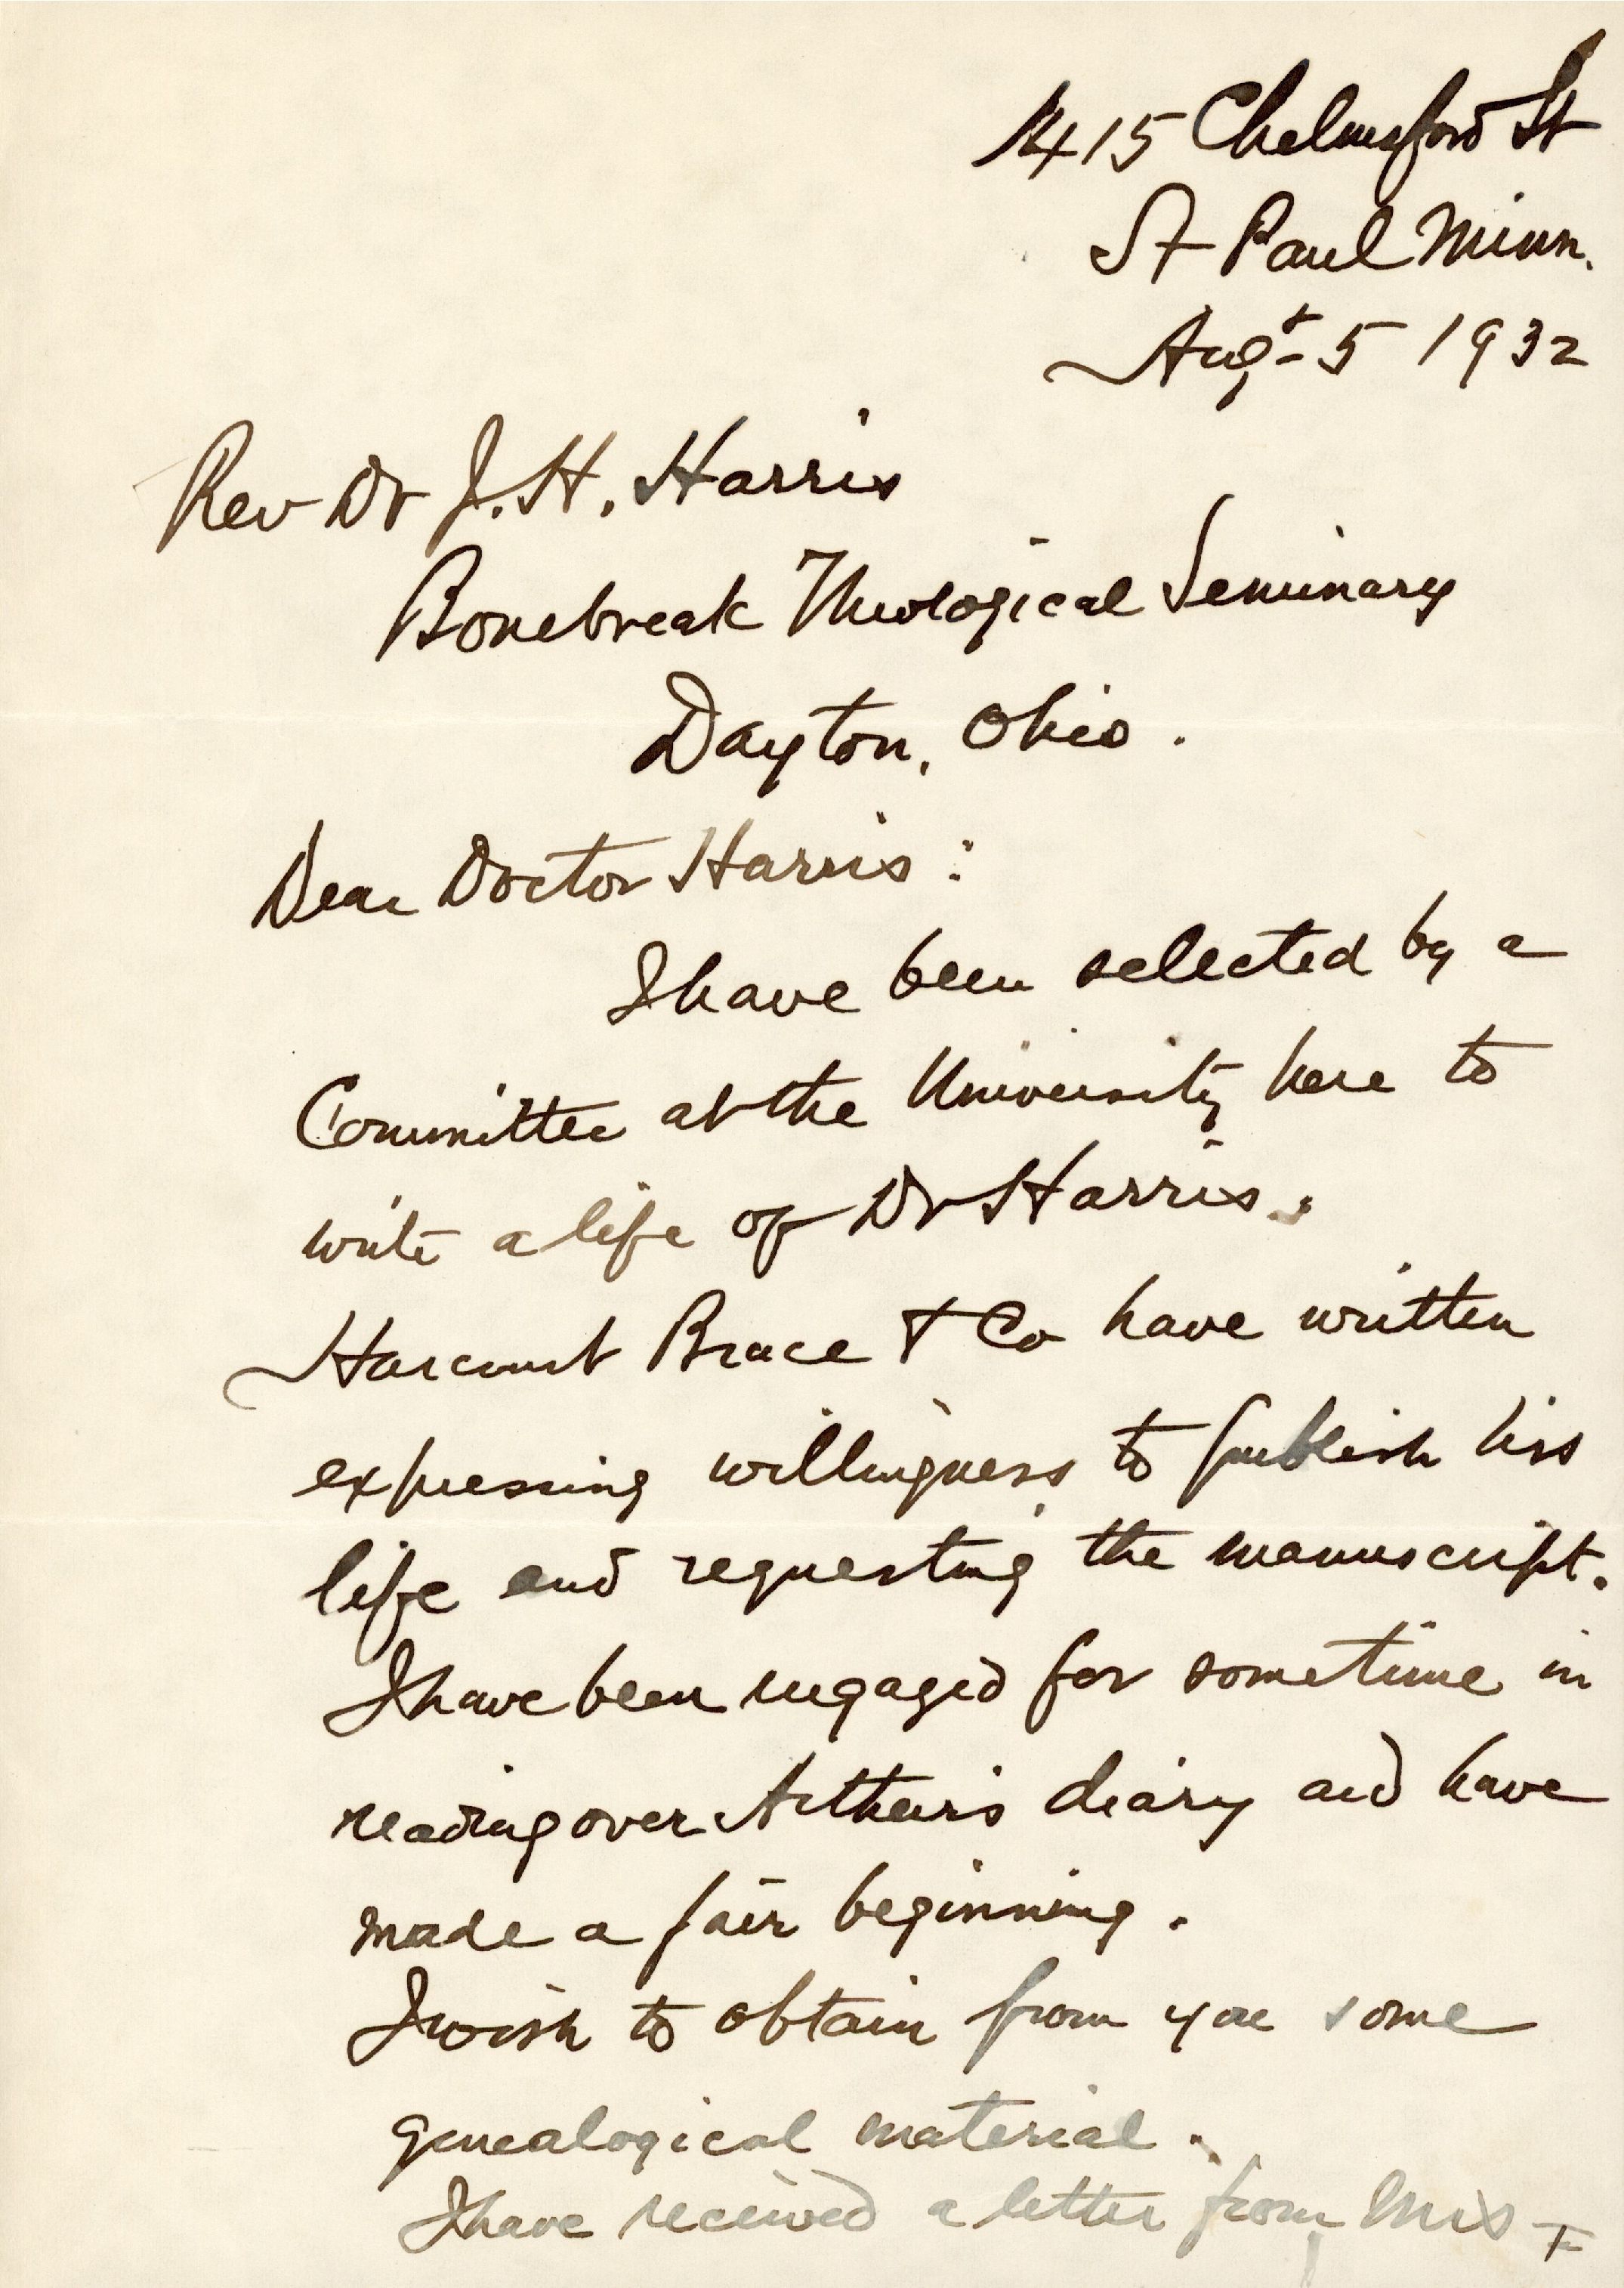 1415 Chelmsford St
St Paul Minn.
Augt 5 1932
Rev Dr J. H. Harris
Bonebreak Theological Seminary
Dayton, Ohio.
Dear Doctor Harris:
I have been selected by a
Committee at the University here to
write a life of Dr Harris.
Harcourt Brace & Co have written
expressing willingness to publish his
life and requesting the manuscript.
I have been engaged for sometime in
reading over Arthur's diary and have
made a fair beginning.
I wish to obtain from you some
genealogical material.
I have received a letter from Mrs